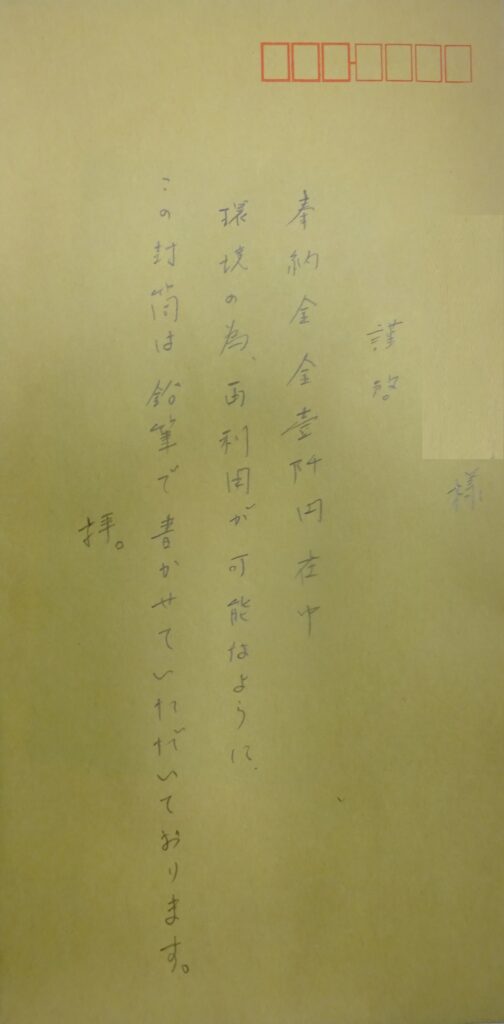 様
謹啓。
奉納金金壹阡円在中
環境の為、再利用が可能なように
この封筒は鉛筆で書かせていただいております。
拝。